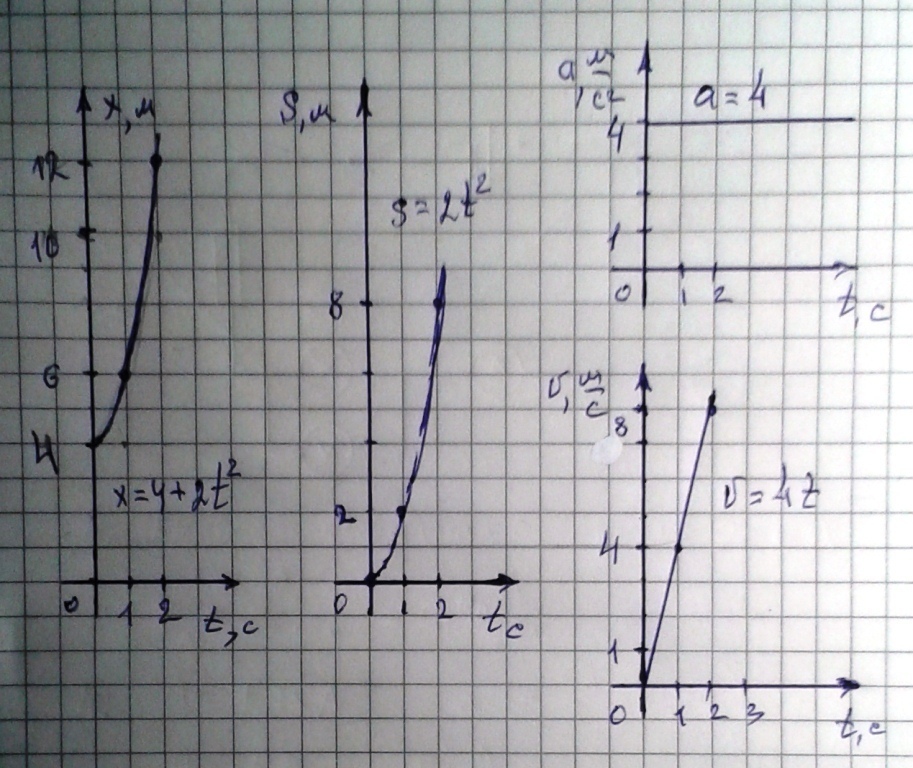 x, м
12
10
6
4
x = 4 + 2t²
0 1 2 t, с
S, м
S = 2t²
8
2
0 1 2 t с
a, м/с²
a = 4
4
1
0 1 2 t, с
υ, м/с
8
υ = 4t
4
1
0 1 2 3 t, с